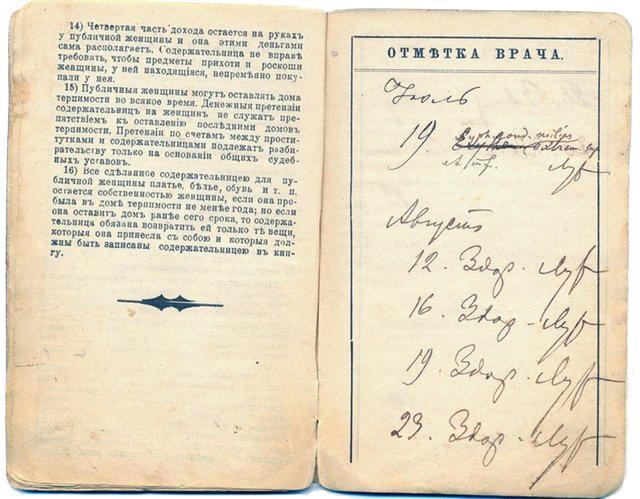 14) Четвертая часть дохода остается на рукахъ
у публичной женщины и она этими деньгами
сама располагаетъ. Содержательница не вправѣ
требовать, чтобы предметы прихоти и роскоши
женщины, у ней находящіяся, непремѣнно поку-
пали у нея.
15) Публичныя женщины могутъ оставлять дома
терпимости во всякое время. Денежныя претензіи
содержательницъ на женщинъ не служатъ прe-
пятствіемъ къ оставленію послѣдними домовъ
терпимости. Претензіи по счетамъ между прости-
тутками и содержательницами подлежатъ разби-
рательству только на основаніи общихъ судеб-
ныхъ уставовъ.
16) Все сдѣланное содержательницею для пу-
бличной женщины платье, бѣлье, обувь и т. п.
остается собственностью женщины, если она про-
была въ домѣ терпимости не менѣе года; но если
она оставитъ домъ ранѣе сего срока, то содержа-
тельница обязана возвратить ей только тѣ вещи,
которыя она принесла съ собою и которыя дол-
жны быть записаны содержательницею въ кни-
гу.
ОТМѢТКА ВРАЧА.
Іюль
19
Августъ
12. Здор.
16. Здор.
19. Здор.
23. Здор.